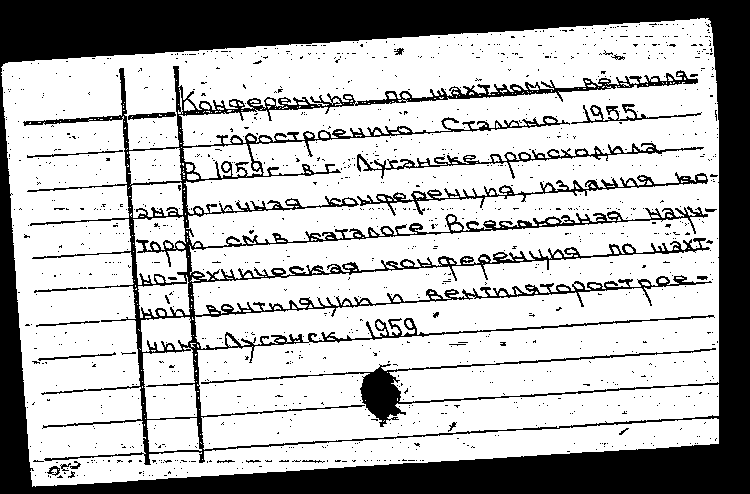 Конференция по шахтному вентиля-
торостроению. Сталино. 1955.
В 1959г. в г. Луганске происходила
аналогичная конференция, издания ко-
торой см. в каталоге: Всесоюзная науч-
но-техническая конференция по шахт-
ной вентиляции и вентиляторострое-
нию. Луганск. 1959.